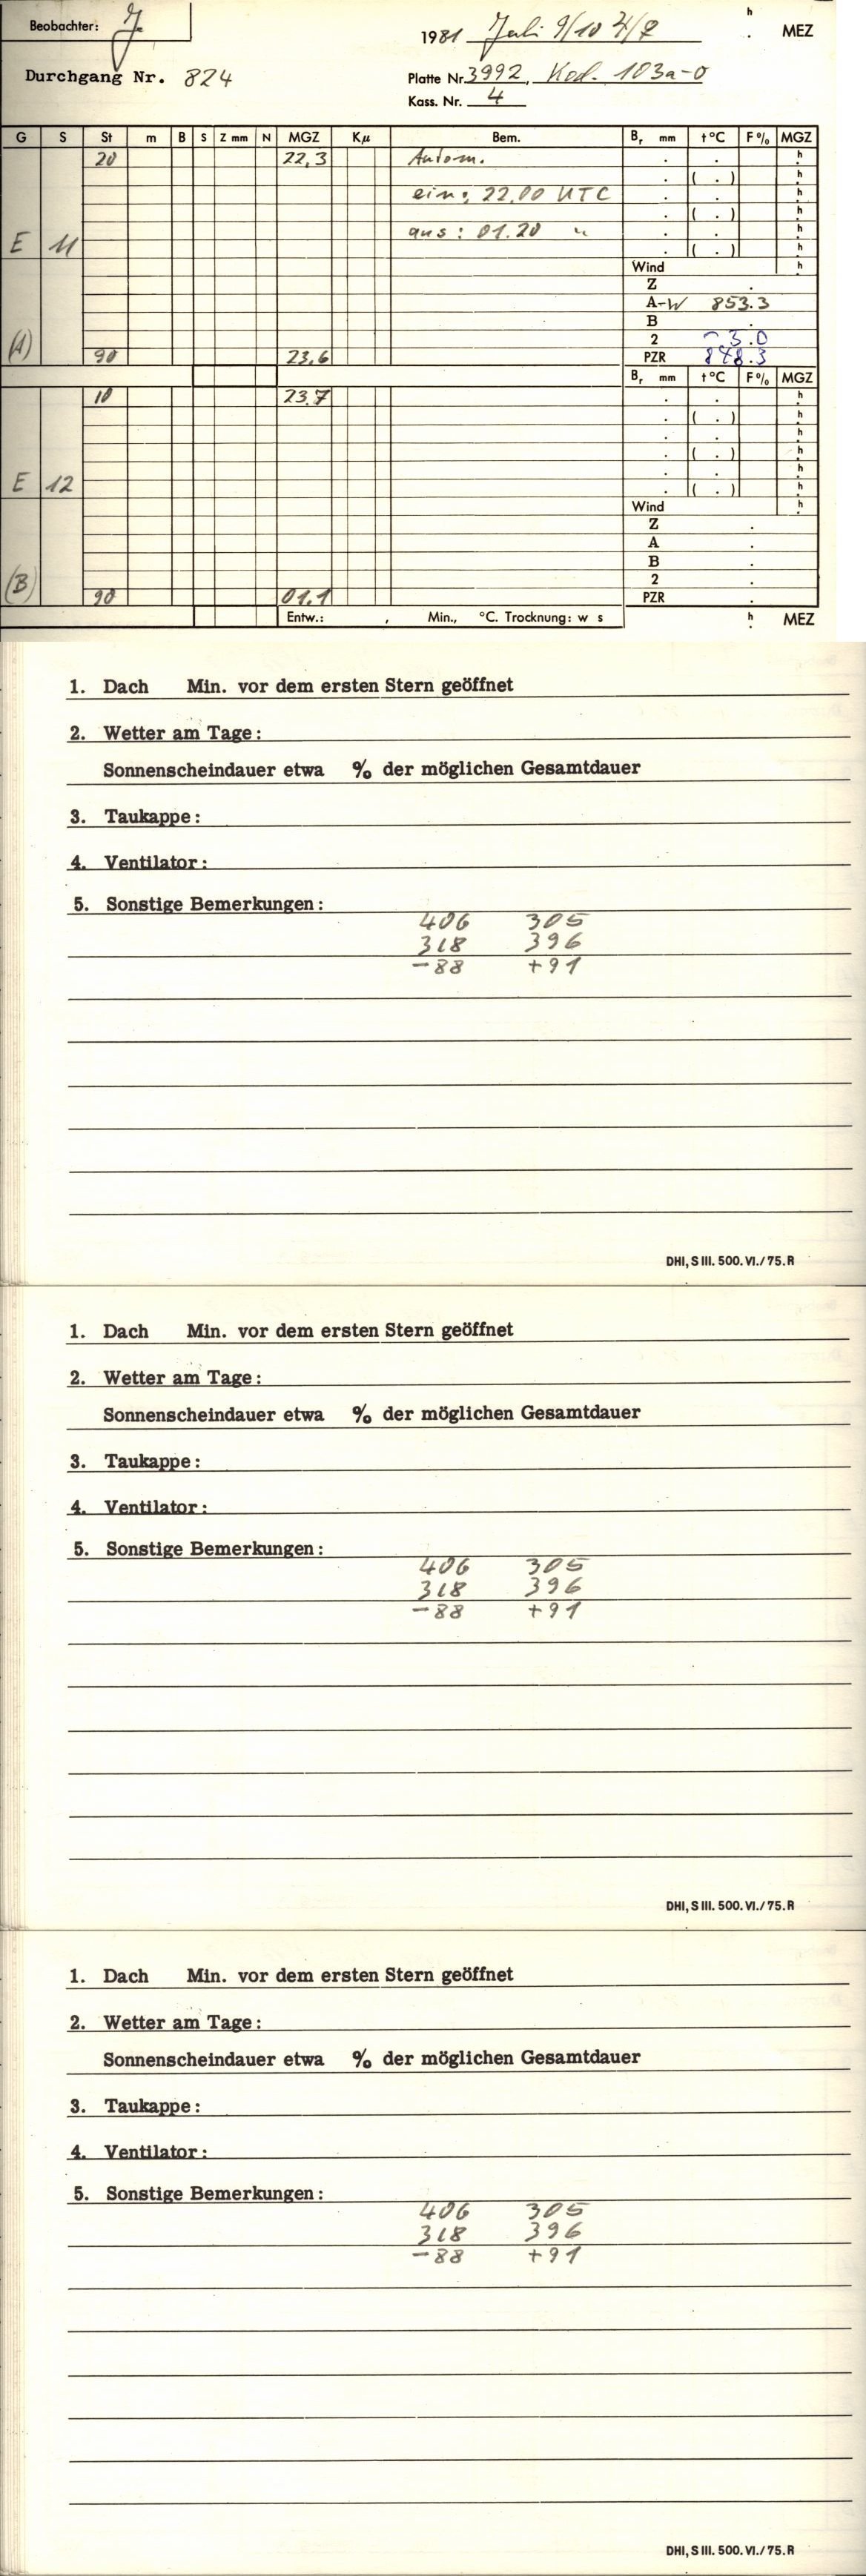 Beobachter: J.
1981 Juli 9/10 ♃/♀ h . MEZ
Durchgang Nr. 824
Platte Nr. 3992, Kod. 103a-0
Kass. Nr. 4
G S St m B S Z mm N MGZ Kμ Bem. Br mm t°C F% MGZ
20 22,3 Autom. . . h
. ( . ) h
ein: 22.00 UTC . . h
. ( . ) h
aus: 01.20 " . . h
E 11 . ( . ) h
Wind h
Z .
A-W 853.3
B .
2 -3.0
(A) 90 23,6 PZR 848.3
Br mm t°C F% MGZ
10 23.7 . . h
. ( . ) h
. . h
. ( . ) h
. . h
E 12 . ( . ) h
Wind h
Z .
A .
B .
2 .
(B) 90 01.1 PZR .
Entw.: , Min., °C. Trocknung: w s h . MEZ
1. Dach Min. vor dem ersten Stern geöffnet
2. Wetter am Tage:
Sonnenscheindauer etwa % der möglichen Gesamtdauer
3. Taukappe:
4. Ventilator:
5. Sonstige Bemerkungen:
406 305
318 396
-88 +91
DHI, S III. 500. VI./75. R
1. Dach Min. vor dem ersten Stern geöffnet
2. Wetter am Tage:
Sonnenscheindauer etwa % der möglichen Gesamtdauer
3. Taukappe:
4. Ventilator:
5. Sonstige Bemerkungen:
406 305
318 396
-88 +91
DHI, S III. 500. VI./75. R
1. Dach Min. vor dem ersten Stern geöffnet
2. Wetter am Tage:
Sonnenscheindauer etwa % der möglichen Gesamtdauer
3. Taukappe:
4. Ventilator:
5. Sonstige Bemerkungen:
406 305
318 396
-88 +91
DHI, S III. 500. VI./75. R